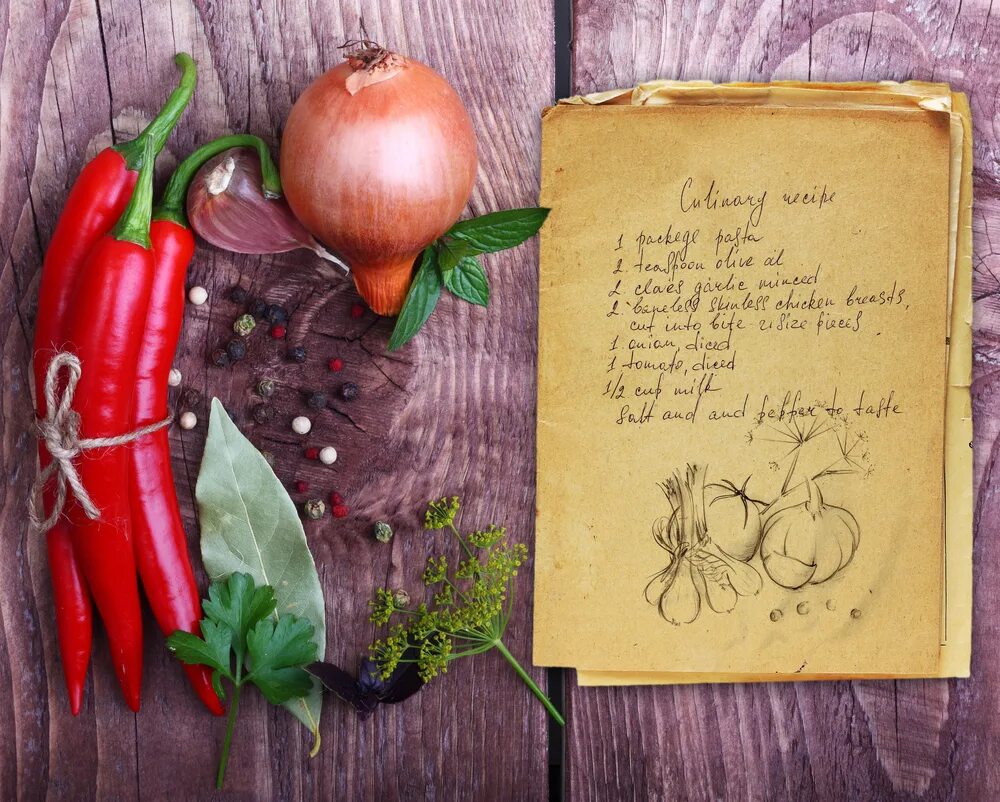 Culinary recipe
1 packege pasta
2. teaspoon olive oil
2 cloves garlic minced
2. boneless skinless chicken breasts,
cut into bite-size pieces
1. onion, diced
1 tomato, diced
1/2 cup milk
Salt and and pepper to taste